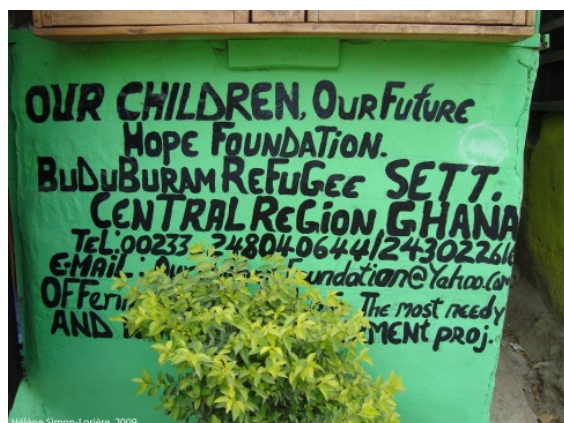 OUR CHILDREN, OUR FUTURE
HOPE FOUNDATION.
BUDUBURAM REFUGEE SETT.
CENTRAL REGION GHANA
TEL: 00233 248040644/243022616
E-MAIL: Foundation@Yahoo.Com
The most needy
AND PROJ.
Hélène Simon-Lorière, 2009